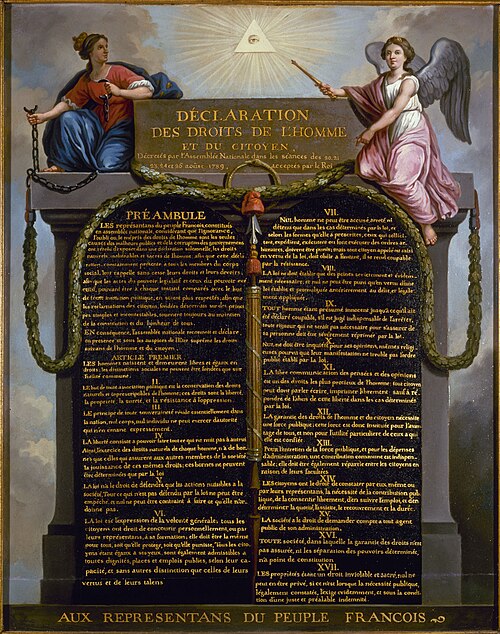 DÉCLARATION
DES DROITS DE L'HOMME
ET DU CITOYEN,
Décrétés par l'Assemblée Nationale dans les séances des 20, 21
23, 24 et 26 août 1789, acceptés par le Roi
PRÉAMBULE
LES représentans du peuple François, constitués
en assemblée nationale, considérant que l'ignorance,
l'oubli ou le mépris des droits de l'homme sont les seules
causes des malheurs publics et de la corruption des gouvernemens
ont résolu d'exposer dans une déclaration solemnelle, les droits
naturels, inaliénables et sacrés de l'homme, afin que cette décla-
ration, constamment présente à tous les membres du corps
social, leur rappelle sans cesse leurs droits et leurs devoirs,
afin que les actes du pouvoir législatif et ceux du pouvoir exé-
cutif, pouvant être à chaque instant comparés avec le but
de toute institution politique, en soient plus respectés, afin que
les réclamations des citoyens, fondées désormais sur des princi-
pes simples et incontestables, tournent toujours au maintien
de la constitution et du bonheur de tous.
EN conséquence, l'assemblée nationale reconnoit et déclare,
en présence et sous les auspices de l'Être suprême les droits
suivans de l'homme et du citoyen.
ARTICLE PREMIER
LES hommes naissent et demeurent libres et égaux en
droits, les distinctions sociales ne peuvent être fondées que sur
l'utilité commune.
II.
LE but de toute association politique est la conservation des droits
naturels et imprescriptibles de l'homme; ces droits sont la liberté,
la propriété, la sureté, et la résistance à l'oppression.
III.
LE principe de toute souveraineté réside essentiellement dans
la nation, nul corps, nul individu ne peut exercer d'autorité
qui n'en émane expressément.
IV.
LA liberté consiste à pouvoir faire tout ce qui ne nuit pas à autrui
Ainsi, l'exercice des droits naturels de chaque homme, n'a de bor-
nes que celles qui assurent aux autres membres de la société
la jouissance de ces mêmes droits; ces bornes ne peuvent
être déterminées que par la loi
V.
LA loi n'a le droit de défendre que les actions nuisibles à la
société. Tout ce qui n'est pas défendu par la loi ne peut être
empêché, et nul ne peut être contraint à faire ce qu'elle n'or-
donne pas.
VI.
LA loi est l'expression de la volonté générale; tous les
citoyens ont droit de concourir personnellement, ou par
leurs représentans, à sa formation; elle doit être la même
pour tous, soit qu'elle protege, soit qu'elle punisse. Tous les cito-
yens étant égaux à ses yeux, sont également admissibles à
toutes dignités, places et emplois publics, selon leur ca-
pacité, et sans autres distinction que celles de leurs
vertus et de leurs talens
VII.
NUL homme ne peut être accusé, arrêté ni
détenu que dans les cas déterminés par la loi, et
selon les formes qu'elle a prescrites, ceux qui sollici-
tent, expédient, exécutent ou font exécuter des ordres ar-
bitraires, doivent être punis; mais tout citoyen appelé ou saisi
en vertu de la loi, doit obéir à l'instant, il se rend coupable
par la résistance.
VIII.
LA loi ne doit établir que des peines strictement et évidem-
ment nécessaires, et nul ne peut être puni qu'en vertu d'une
loi établie et promulguée antérieurement au délit, et léga-
lement appliquée.
IX.
TOUT homme étant présumé innocent jusqu'à ce qu'il ait
été déclaré coupable, s'il est jugé indispensable de l'arrêter,
toute rigueur qui ne serait pas nécessaire pour s'assurer de
sa personne doit être sévèrement réprimée par la loi.
X.
NUL ne doit être inquiété pour ses opinions, mêmes reli-
gieuses pourvu que leur manifestation ne trouble pas l'ordre
public établi par la loi.
XI.
LA libre communication des pensées et des opinions est
un des droits les plus precieux de l'homme; tout citoyen
peut donc parler écrire, imprimer librement: sauf à ré-
pondre de l'abus de cette liberté dans les cas déterminés
par la loi.
XII.
LA garantie des droits de l'homme et du citoyen nécessite
une force publique; cette force est donc instituée pour l'avan-
tage de tous, et non pour l'utilité particuliere de ceux à qui
elle est confiée.
XIII.
POUR l'entretien de la force publique, et pour les dépenses
d'administration, une contribution commune est indispen-
sable; elle doit être également répartie entre les citoyens en
raison de leurs facultées
XIV.
LES citoyens ont le droit de constater par eux même ou
par leurs représentans, la nécessité de la contribution pub-
lique, de la consentir librement, d'en suivre l'emploi, et d'en
déterminer la quotité, l'assiette, le recouvrement et la durée.
XV.
LA société a le droit de demander compte à tout agent
public de son administration.
XVI.
TOUTE société, dans laquelle la garantie des droits n'est
pas assurée, ni les séparation des pouvoirs déterminée,
n'a point de constitution.
XVII.
LES propriétés étant un droit inviolable et sacré, nul ne
peut en être privé, si ce n'est lorsque la nécessité publique,
légalement constatée, l'exige évidemment, et sous la condi-
tion d'une juste et préalable indemnité.
AUX REPRESENTANS DU PEUPLE FRANCOIS